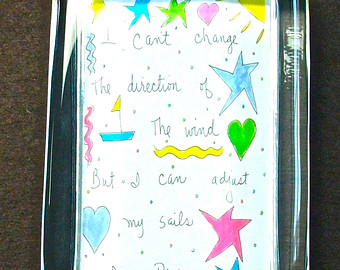 I can't change
The direction of
The wind
But I can adjust
my sails